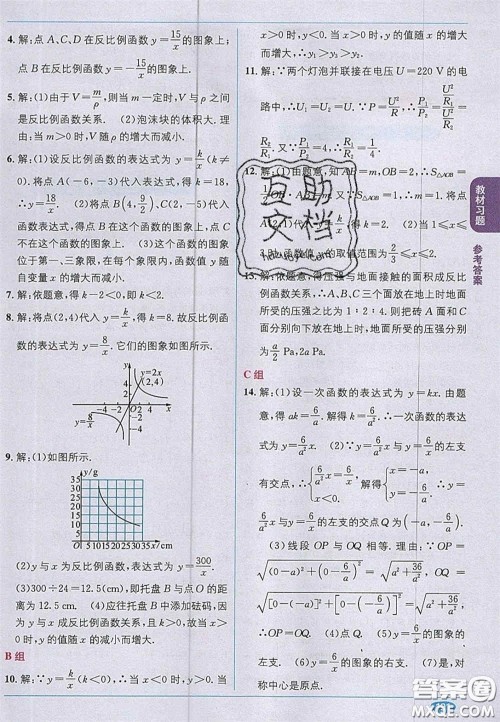 4. 解:点A,C,D在反比例函数y=15/x的图象上;
点B在反比例函数y=-15/x的图象上.
5. 解:(1)由于V=m/ρ,则当m一定时,V与ρ之间的
是反比例函数关系. (2)泡沫块的体积大.
理由:当m>0时,V随ρ的增大而减小.
6. 解:(1)设反比例函数的表达式为y=k/x(k≠
0).将点A(-6,-3)代入表达式,得k=18,
∴y=18/x. (2)将点B(4,9/2),C(2,-5)代入表达
式,得点B在这个函数的图象上,点C不在这
个函数的图象上. (3)这个函数的图象位于
第一、三象限,在每个象限内,函数值y随
自变量x的增大而减小.
7. 解:依题意,得-k=2,∴k=-2.
8. 解:将点(2,4)代入y=k/x,得k=8.故反比例函
数的表达式为y=8/x.它们的图象如图所示.
y
y=2x
(2,4)
-4 -2 O 2 4 x
y=8/x
9. 解:(1)如图所示.
y/g
35
30
25
20
15
10
5
0 5 10 15 20 25 30 35 x/cm
(2)y与x为反比例函数关系,y=300/x.
(3)300÷24=12.5(cm),即托盘B与点O的
距离为12.5 cm. (4)应往托盘中添加砝码,因
为y与x成反比例函数关系,且k>0,故当x>
0时,y的值随x的减小而增大.
B组
10. 解:(1)∵y=k/x(k<0),∴当x<0时或当
x>0时,k<0时,y的值随x的增大
而增大,∴y₁>y₃>y₂.
11. 解:∵两个灯泡并联接在电压U=220 V的电
路中,∴U₁=U₂=U.∵P=U²/R,∴P₁/P₂=(U²/R₁)/(U²/R₂)=
R₂/R₁.又∵R₁/R₂=3/4,∴P₁/P₂=4/3.
12. 解:(1)由题意,知AB=m,OB=2,∴S△AOB=
(3)
的取值范围为2/3≤y≤2.
13. 解:依题意,得压强与地面的面积成反比
例函数关系,∴A,B,C三个面放在地上时地面
所受的压强之比为1∶2∶4.则把砖的A面和C
面分别向下放在地上时,地面所受的压强分别
为a/2 Pa,2a Pa.
C组
14. 解:(1)设一次函数的表达式为y=kx.由题
意,得ak=6/a,得k=6/a²,∴y=6/a²x.
(2)∵y=6/a²x与y=6/x的左支
有交点,∴
∴y=6/a²x与y=6/x的左支的交点Q为(-a,
-6/a). (3)线段OP与OQ相等.理由:∵OP=
√((0-a)²+(0-6/a)²)=√(a²+36/a²),OQ=
√([0-(-a)]²+[0-(-6/a)]²)=√(a²+36/a²),
∴OP=OQ.
对称中心是原点.
教材习题
参考答案
互助
文档
答案圈
MXQE.COM